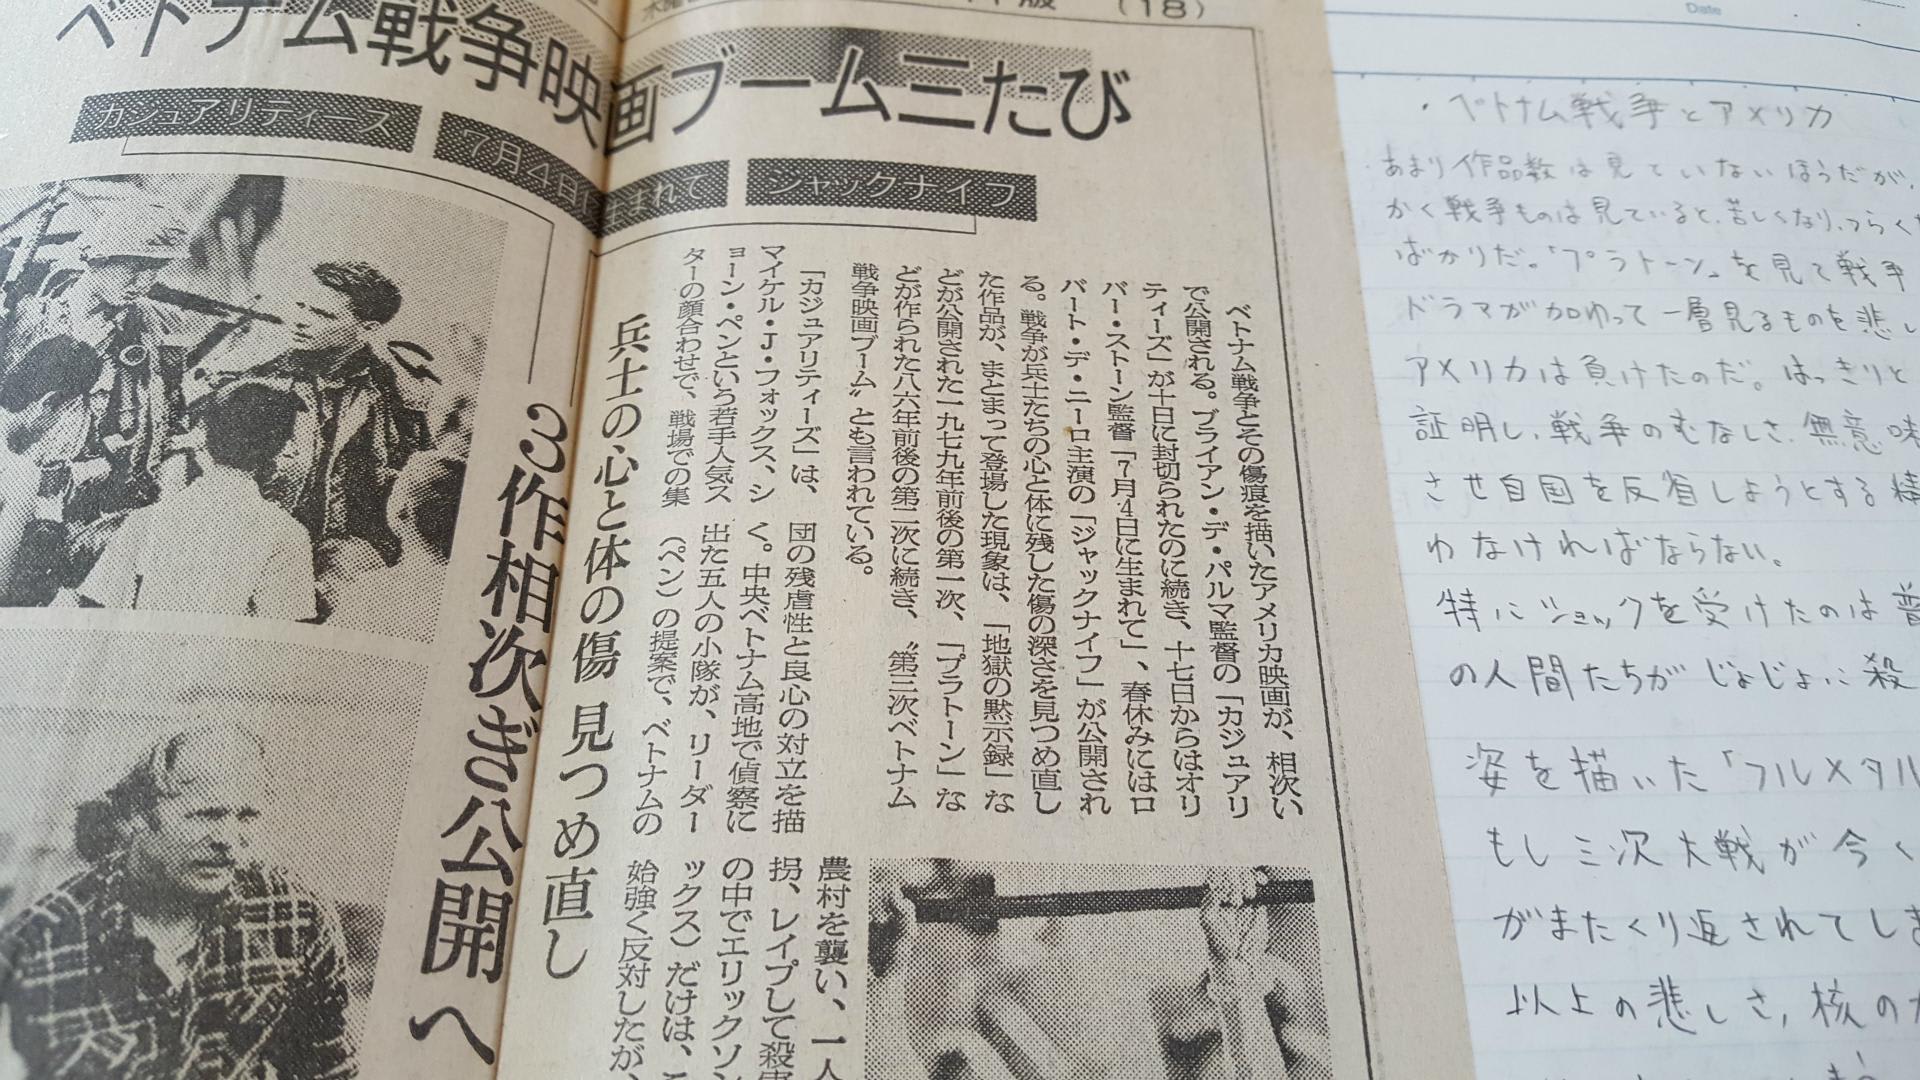 (18)
ベトナム戦争映画ブーム三たび
カジュアリティーズ
7月4日に生まれて
ジャックナイフ
3作相次ぎ公開へ
兵士の心と体の傷 見つめ直し
ベトナム戦争とその傷痕を描いたアメリカ映画が、相次い
で公開される。ブライアン・デ・パルマ監督の「カジュアリ
ティーズ」が十日に封切られたのに続き、十七日からはオリ
バー・ストーン監督「7月4日に生まれて」、春休みにはロ
バート・デ・ニーロ主演の「ジャックナイフ」が公開され
る。戦争が兵士たちの心と体に残した傷の深さを見つめ直し
た作品が、まとまって登場した現象は、「地獄の黙示録」な
どが公開された一九七九年前後の第一次、「プラトーン」な
どが作られた八六年前後の第二次に続き、〝第三次ベトナム
戦争映画ブーム〟とも言われている。
「カジュアリティーズ」は、
マイケル・J・フォックス、シ
ョーン・ペンという若手人気ス
ターの顔合わせで、戦場での集
団の残虐性と良心の対立を描
く。中央ベトナム高地で偵察に
出た五人の小隊が、リーダー
(ペン)の提案で、ベトナムの
農村を襲い、一人
拐、レイプして殺害
の中でエリックソン
ックス)だけは、
始強く反対したが、
Date
・ベトナム戦争とアメリカ
あまり作品数は見ていないほうだが、
かく戦争ものは見ていると、苦しくなり、つらく
ばかりだ。「プラトーン」を見て戦争
ドラマが加わって一層見るものを悲し
アメリカは負けたのだ。はっきりと
証明し、戦争のむなしさ、無意味
させ自国を反省しようとする精
わなければならない。
特にショックを受けたのは普
の人間たちがじょじょに殺
姿を描いた「フルメタル
もし三次大戦が今く
がまたくり返されてしま
以上の悲しさ、核の